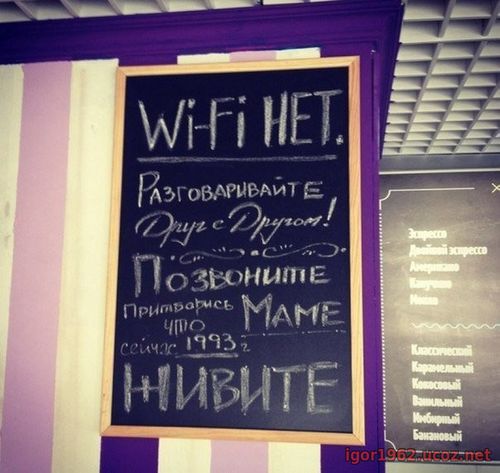 Wi-Fi НЕТ.
РАЗГОВАРИВАЙТЕ
Друг с Другом!
ПОЗВОНИТЕ
Притворись МАМЕ
что
сейчас 1993 г
ЖИВИТЕ
Эспрессо
Двойной эспрессо
Американо
Капучино
Мокко
Классический
Карамельный
Кокосовый
Ванильный
Имбирный
Банановый
igor1962.ucoz.net